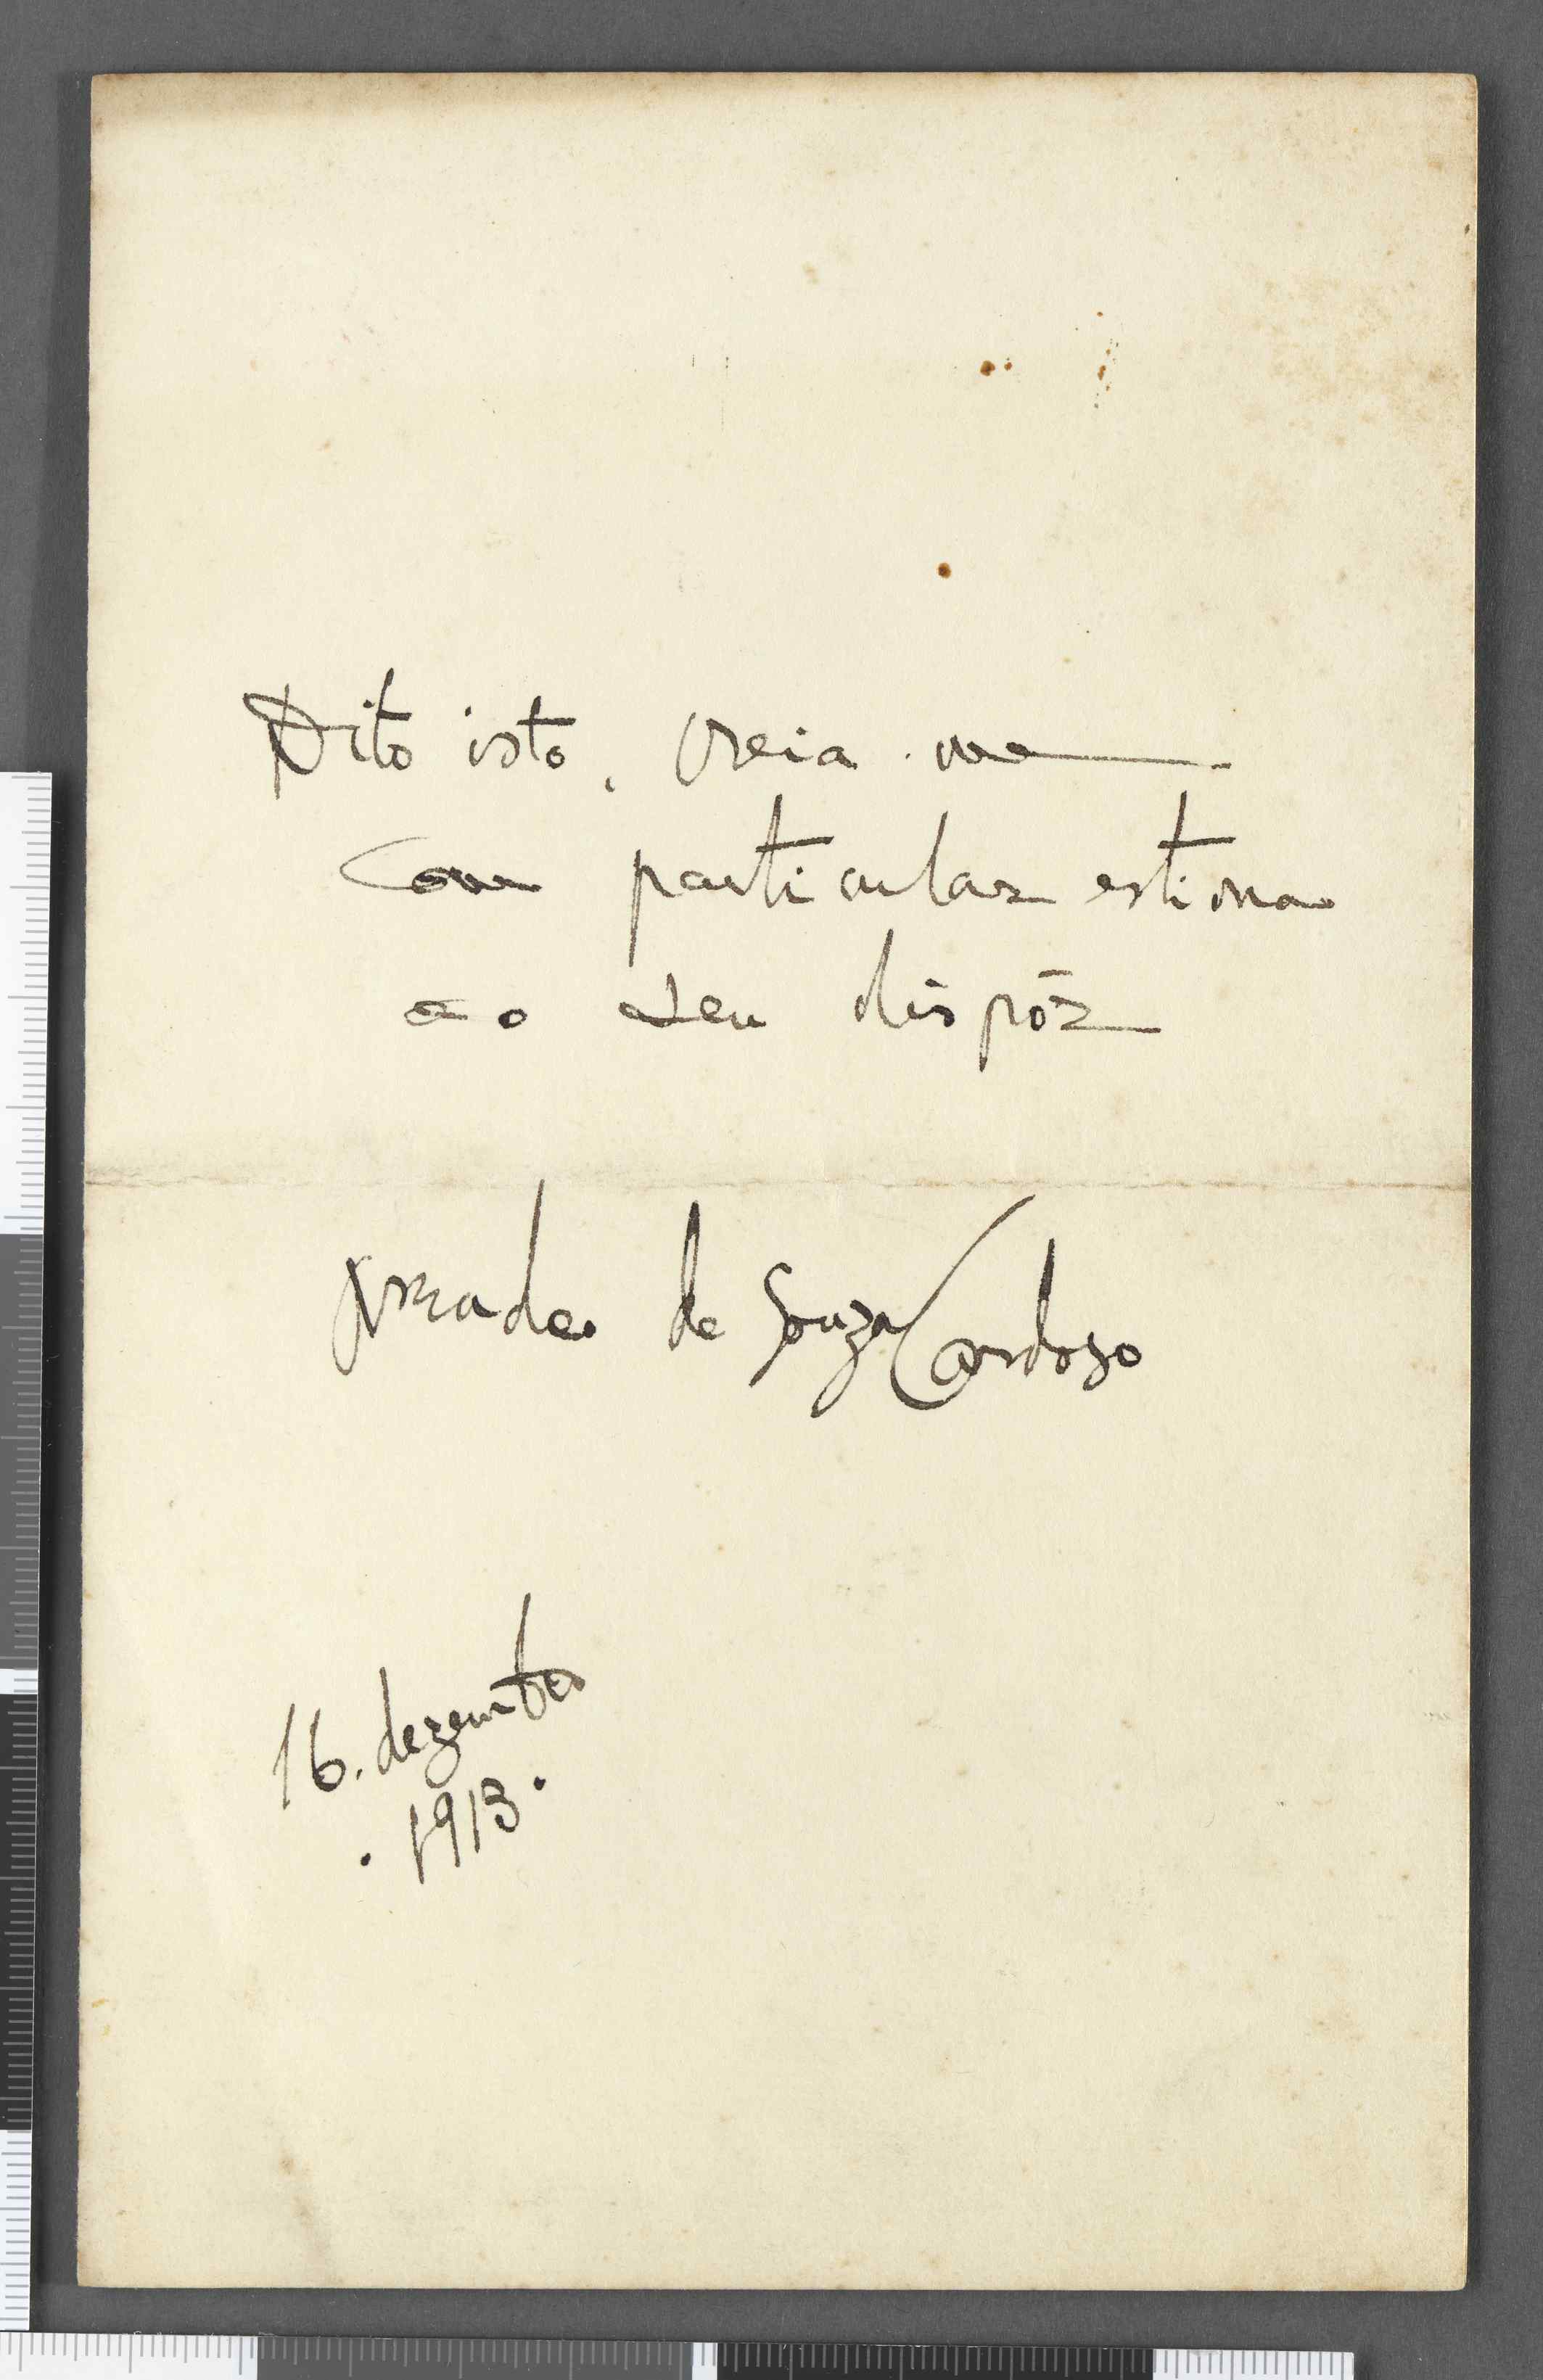 Dito isto, creia-me
com particular estima
ao seu dispôr
Amadeo de Souza Cardoso
16. dezembro
. 1913.